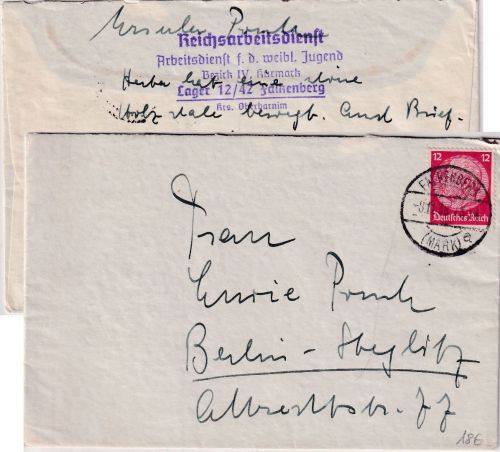 Ursula
Reichsarbeitsdienst
Arbeitsdienst f. d. weibl. Jugend
Bezirk IV, Kurmark
Lager 12/42 Falkenberg
Krs. Oberbarnim
hat eine
bewegt. Und Brief.
12 12
Deutsches Reich
FALKENBERG
(MARK)
Frau
Berlin-Steglitz
Albrechtstr. 77
18€